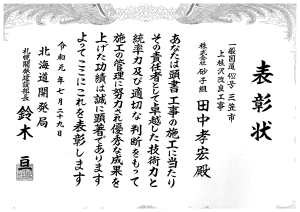 表彰状
一般国道452号 三笠市
上桂沢改良工事
株式会社 砂子組
田中孝宏殿
あなたは頭書工事の施工に当たり
その責任者として卓越した技術力と
統率力及び適切な判断をもって
施工の管理に努力され優秀な成果を
上げた功績は誠に顕著であります
よってここにこれを表彰します
令和元年七月二十九日
北海道開発局
札幌開発建設部長
鈴木亘